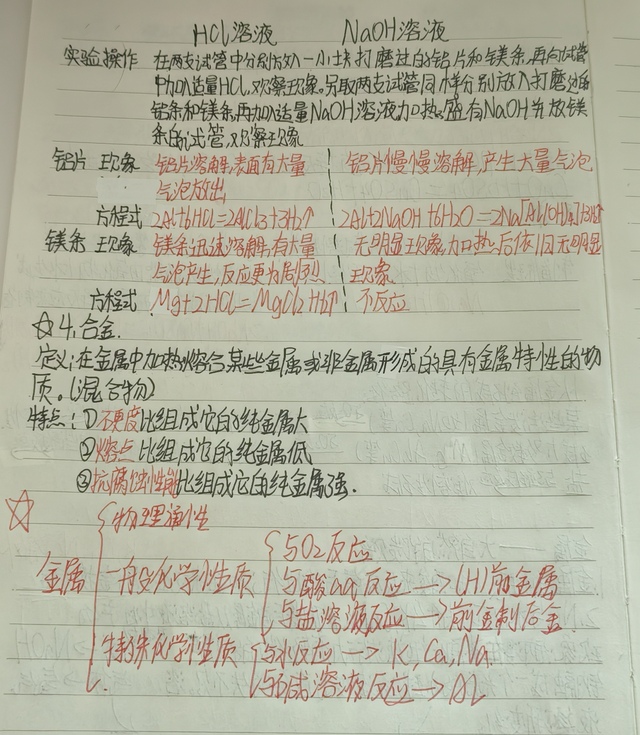 HCl溶液 NaOH溶液
实验操作 在两支试管中分别放入一小块打磨过的铝片和镁条,再向试管
中加入适量HCl,观察现象。另取两支试管同样分别放入打磨过的
铝条和镁条,再加入适量NaOH溶液加热盛有NaOH并放镁
条的试管,观察现象
铝片 现象 铝片溶解,表面有大量 铝片慢慢溶解,产生大量气泡
气泡放出
方程式 2Al+6HCl=2AlCl3+3H2↑ 2Al+2NaOH+6H2O=2Na[Al(OH)4]+3H2↑
镁条 现象 镁条迅速溶解,有大量 无明显现象,加热后依旧无明显
气泡产生,反应更为剧烈 现象
方程式 Mg+2HCl=MgCl2+H2↑ 不反应
☆4,合金.
定义:在金属中加热熔合某些金属或非金属形成的具有金属特性的物
质。(混合物)
特点:①硬度比组成它的纯金属大
②熔点比组成它的纯金属低
③抗腐蚀性能比组成它的纯金属强.
☆ 物理通性
与O2反应
金属 一般化学性质 与酸aq反应→(H)前金属
与盐溶液反应→前金制后金
特殊化学性质 与水反应→K,Ca,Na
与碱溶液反应→Al